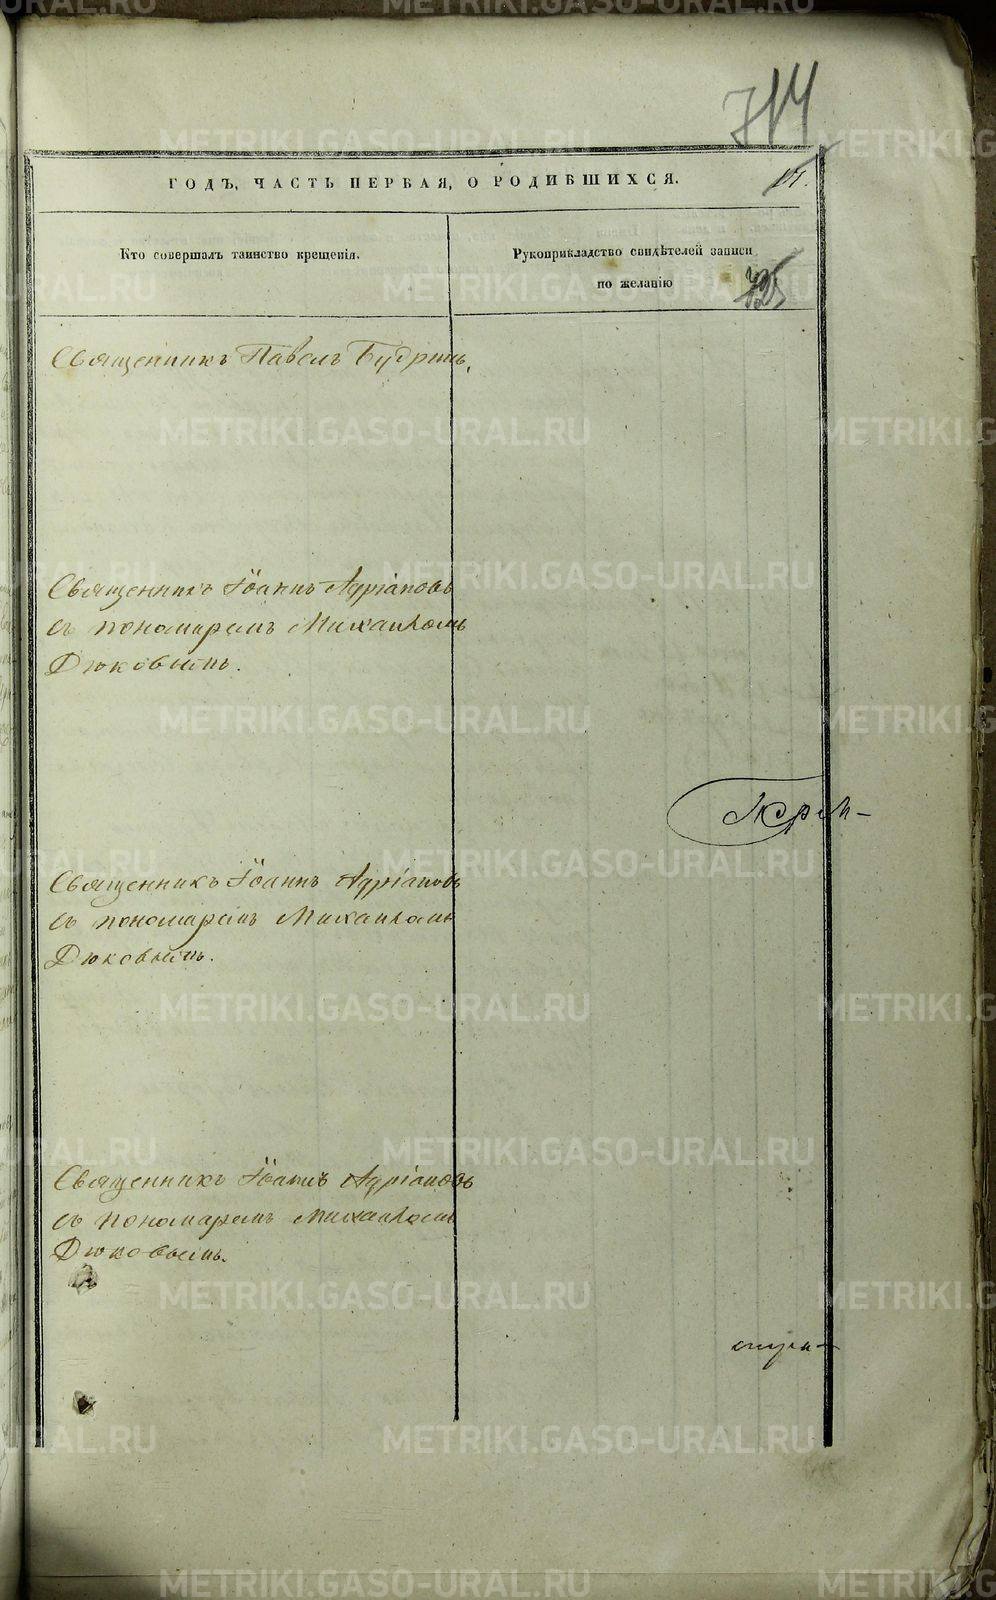 714
ГОДЪ, ЧАСТЬ ПЕРВАЯ, О РОДИВШИХСЯ.
Кто совершалъ таинство крещенія.
Рукоприкладство свидѣтелей записи
по желанію
Священникъ Павелъ Будринъ.
Священникъ Іоаннъ Адріановъ
съ пономаремъ Михаиломъ
Дюковымъ.
Священникъ Іоаннъ Адріановъ
съ пономаремъ Михаиломъ
Дюковымъ.
Священникъ Іоаннъ Адріановъ
съ пономаремъ Михаиломъ
Дюковымъ.
METRIKI.GASO-URAL.RU